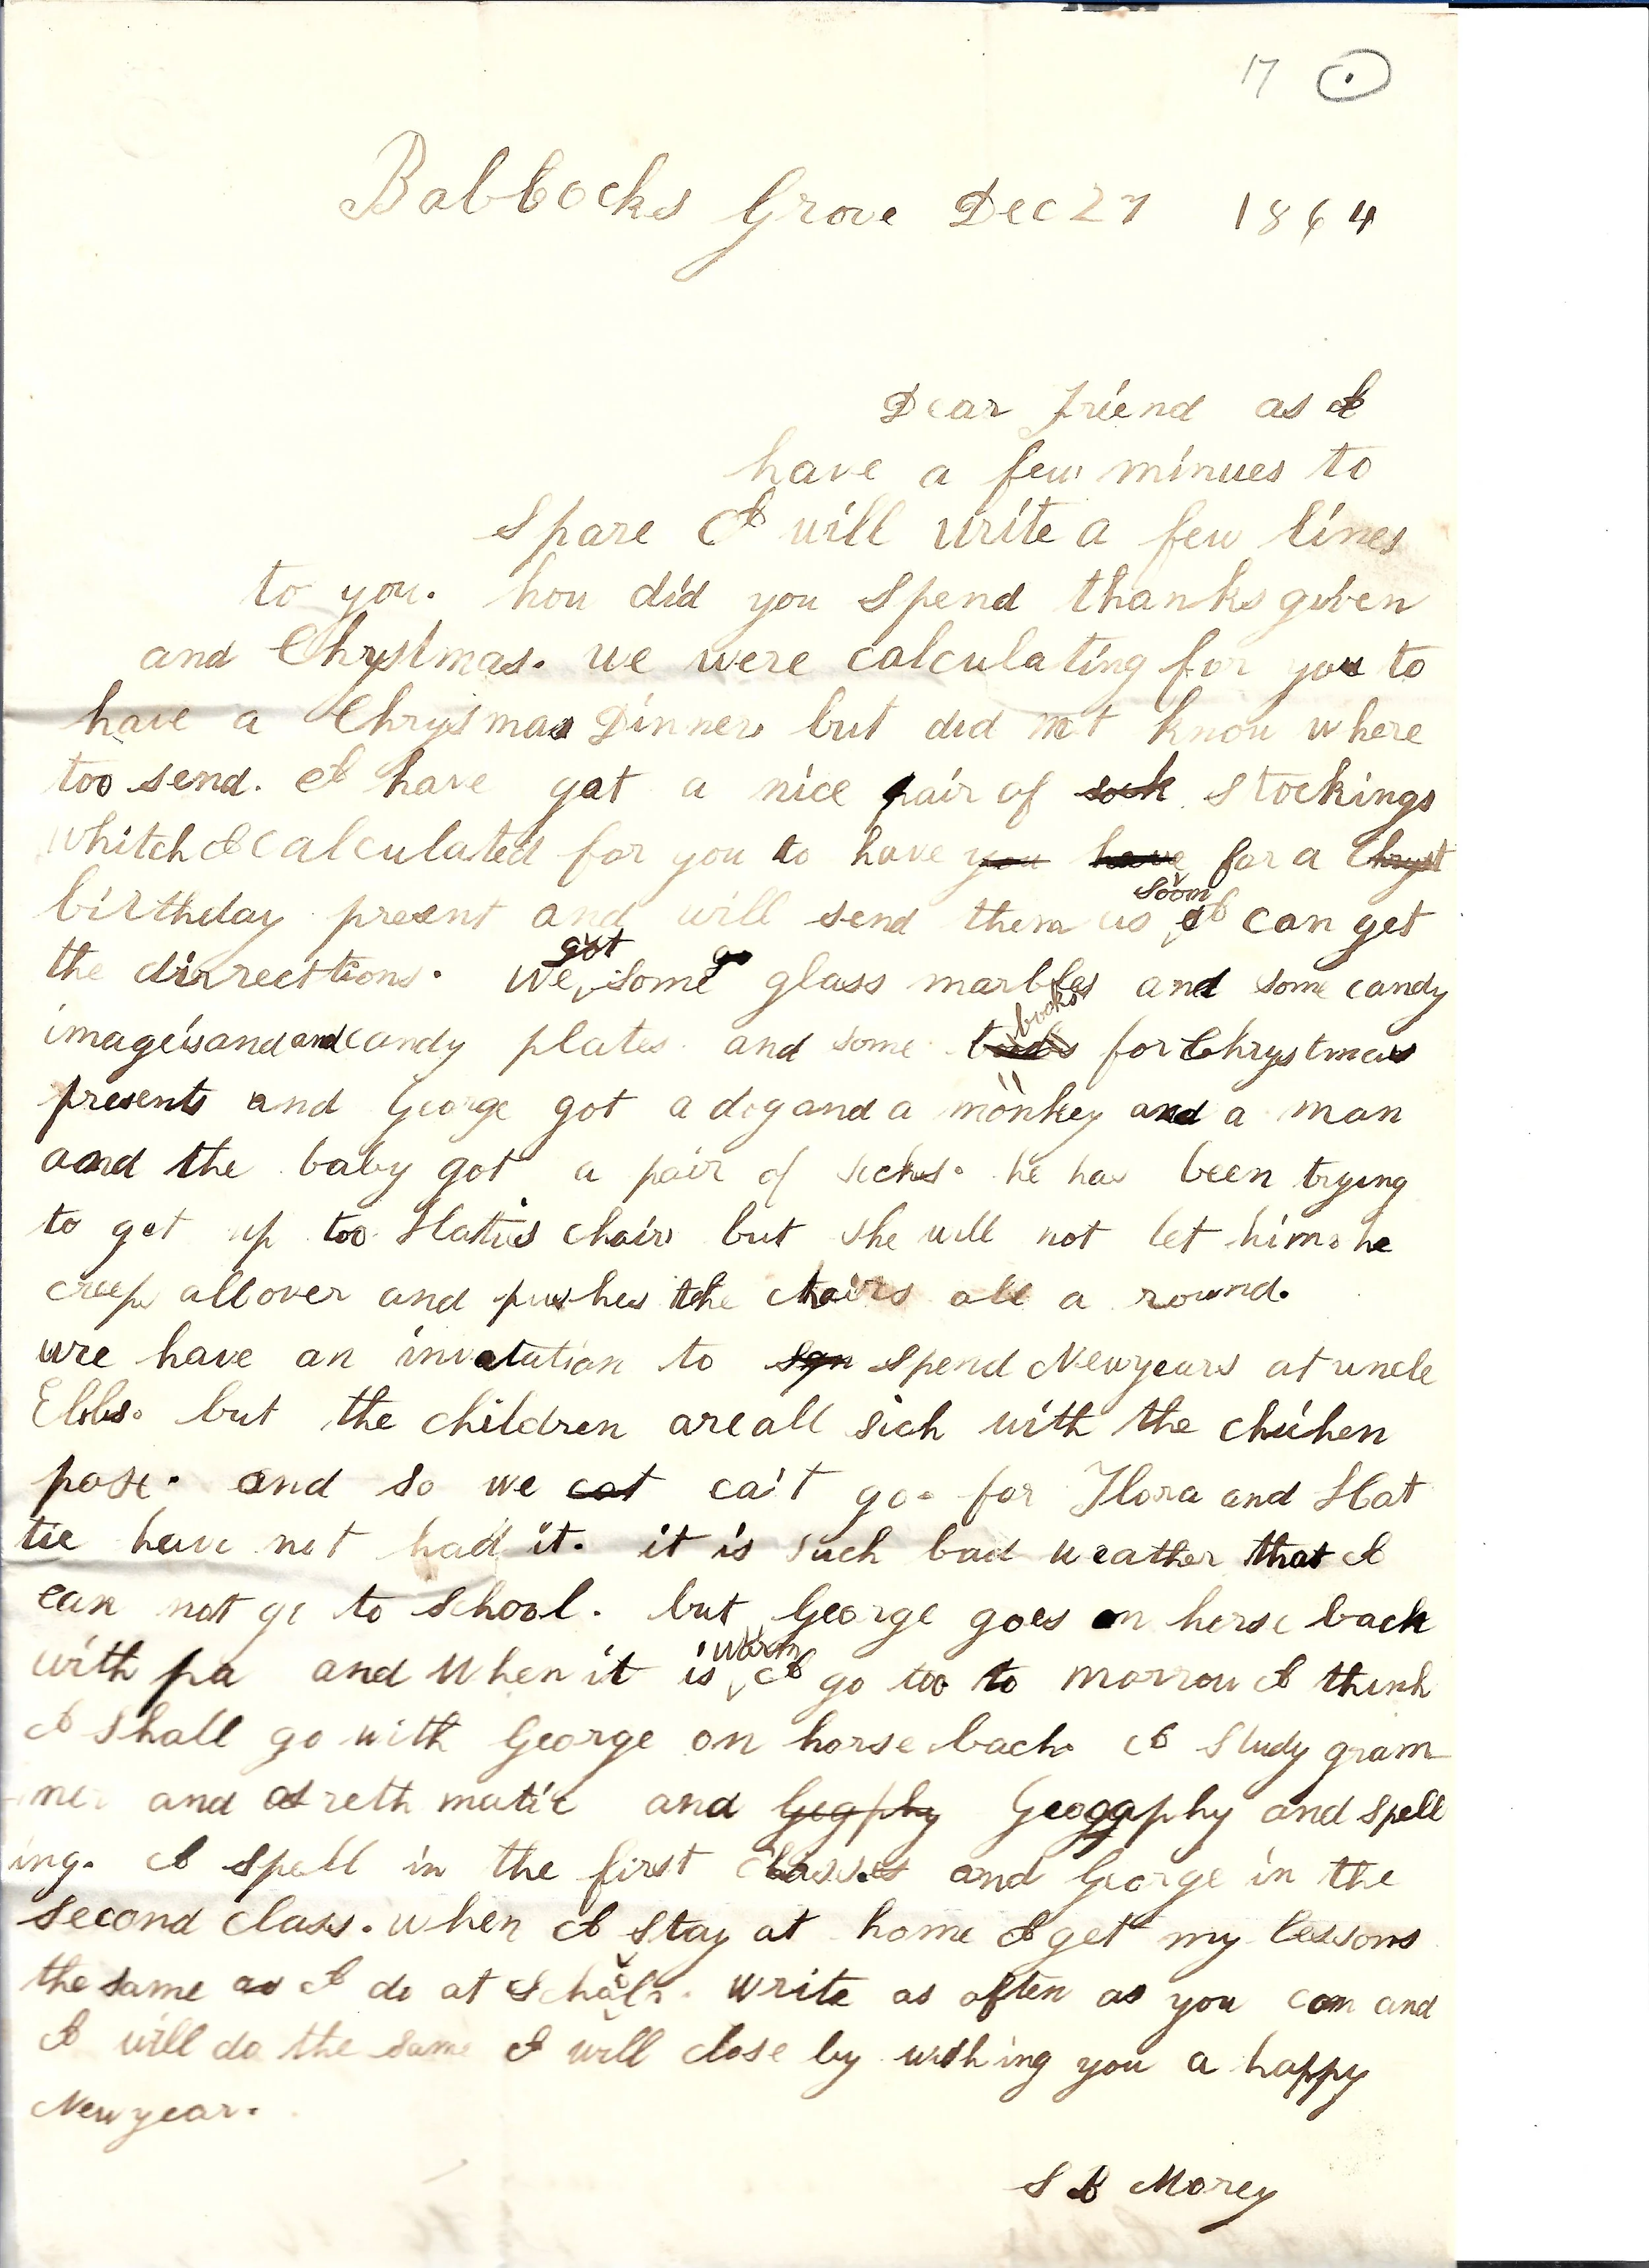 17
Babbocks Grove Dec 27 1864
Dear friend as I
have a few minues to
spare I will write a few lines
to you. how did you spend thanksgiven
and Chrystmas. we were calculating for you to
have a Chrysmas Dinner but did not know where
too send. I have got a nice pair of sock stockings
whitch I calculated for you to have you have for a Chryst
birthday present and will send them as soon I can get
the dirrecttions. We got some go glass marbles and some candy
imageis and and candy plates and some books for Chrystmas
presents and George got a dog and a monkey and a man
aand the baby got a pair of socks. he has been trying
to get up too Hatties chair but she will not let him. he
creeps all over and pushes the chairs all a round.
wre have an invatation to spn spend Newyears at uncle
Elibs. but the children are all sick with the chicken
pose. and so we cat ca't go. for Flora and Hat
tie have not had it. it is such bad weather that I
can not go to school. but George goes on horse back
with pa and when it is warm I go too to morrow I think
I shall go with George on horse back. I study gram
mer and areth matic and Gegphy Geoggphy and spell
ing. I spell in the first classes and George in the
second class. when I stay at home I get my lessons
the same as I do at school. write as often as you can and
I will do the same I will close by wishing you a happy
Newyear.
S B Morey